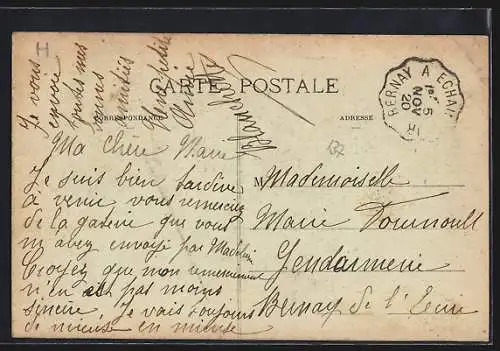 CARTE POSTALE
CORRESPONDANCE
ADRESSE
BERNAY A ECHAU
5
NOV
20
H
137
Ma Chère Marie
Je suis bien tardive
à venir vous remercier
de la gaterie que vous
m avez envoyé par Madeleine
Croyez que mon remerciement
n'en est pas moins
sincère, Je vais toujours
de mieux en mieux
Je vous
envoie
toutes mes
bonnes
amitiés
Une petite
Amie
Blanche
Mademoiselle
Marie Tournoult
Gendarmerie
Bernay de l'Eure